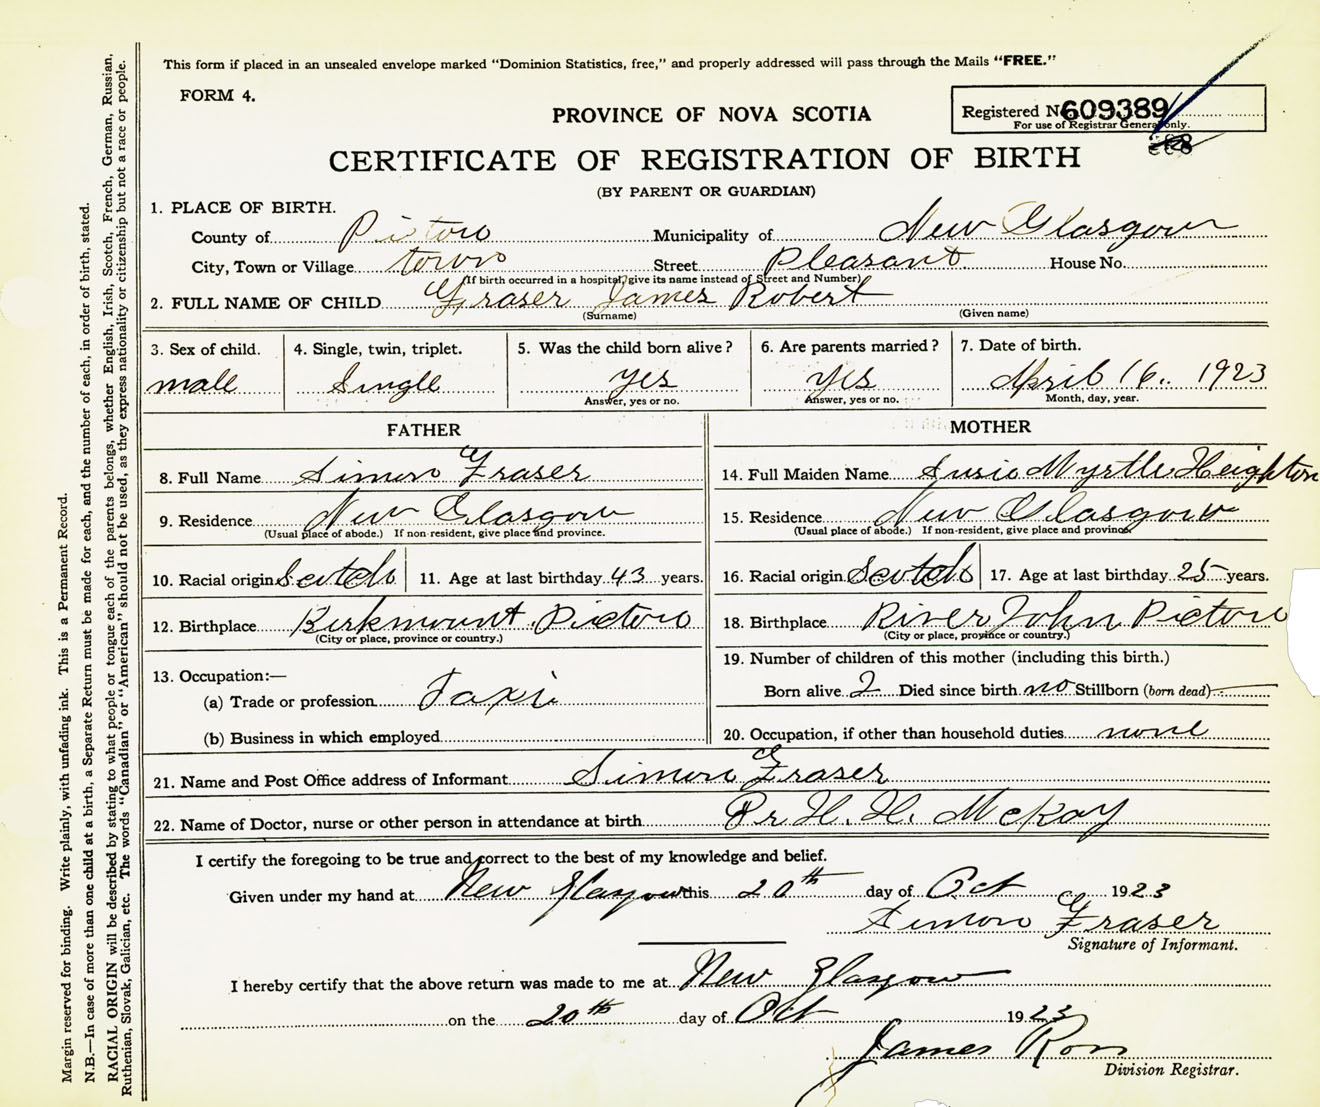 This form if placed in an unsealed envelope marked "Dominion Statistics, free," and properly addressed will pass through the Mails "FREE."
FORM 4.
PROVINCE OF NOVA SCOTIA
Registered No 609389
For use of Registrar General only.
CERTIFICATE OF REGISTRATION OF BIRTH
(BY PARENT OR GUARDIAN)
1. PLACE OF BIRTH.
County of Pictou Municipality of New Glasgow
City, Town or Village town Street Pleasant House No.
(If birth occurred in a hospital, give its name instead of Street and Number)
2. FULL NAME OF CHILD Fraser James Robert
(Surname) (Given name)
3. Sex of child. 4. Single, twin, triplet. 5. Was the child born alive? 6. Are parents married? 7. Date of birth.
male Single yes yes April 16. 1923
Answer, yes or no. Answer, yes or no. Month, day, year.
FATHER MOTHER
8. Full Name Simon Fraser 14. Full Maiden Name Susie Myrtle Heighton
9. Residence New Glasgow 15. Residence New Glasgow
(Usual place of abode.) If non-resident, give place and province. (Usual place of abode.) If non-resident, give place and province.
10. Racial origin Scotch 11. Age at last birthday 43 years. 16. Racial origin Scotch 17. Age at last birthday 25 years.
12. Birthplace Pictou 18. Birthplace River John Pictou
(City or place, province or country.) (City or place, province or country.)
13. Occupation:— 19. Number of children of this mother (including this birth.)
(a) Trade or profession Taxi Born alive 2 Died since birth no Stillborn (born dead) —
(b) Business in which employed 20. Occupation, if other than household duties none
21. Name and Post Office address of Informant Simon Fraser
22. Name of Doctor, nurse or other person in attendance at birth Dr. H. H. McKay
I certify the foregoing to be true and correct to the best of my knowledge and belief.
Given under my hand at New Glasgow this 20th day of Oct 1923
Simon Fraser
Signature of Informant.
I hereby certify that the above return was made to me at New Glasgow
on the 20th day of Oct 1923
James Ross
Division Registrar.
Margin reserved for binding. Write plainly, with unfading ink. This is a Permanent Record.
N.B.—In case of more than one child at a birth, a Separate Return must be made for each, and the number of each, in order of birth, stated.
RACIAL ORIGIN will be described by stating to what people or tongue each of the parents belongs, whether English, Irish, Scotch, French, German, Russian,
Ruthenian, Slovak, Galician, etc. The words "Canadian" or "American" should not be used, as they express nationality or citizenship but not a race or people.